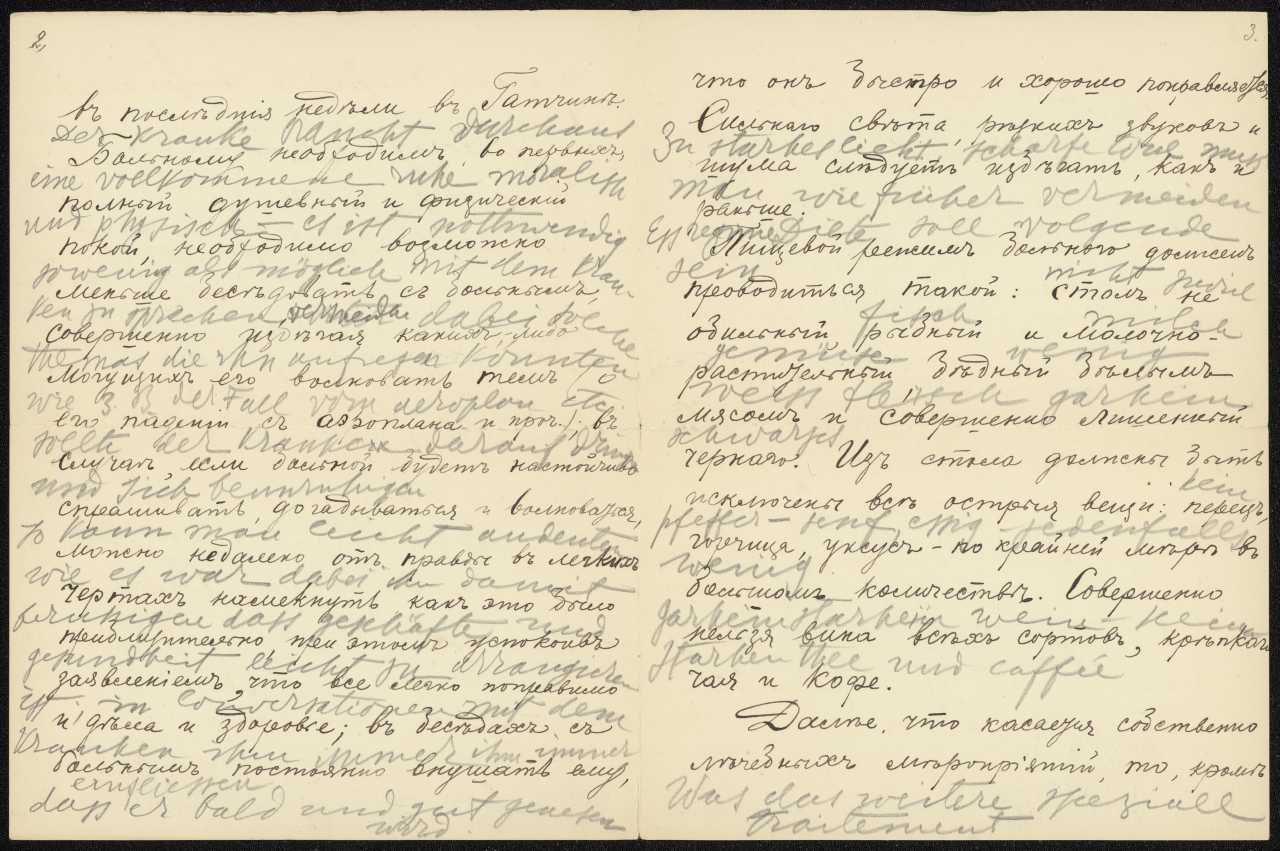 2,
въ послѣднія недѣли въ Гатчинѣ.
Der Kranke braucht durchaus
Больному необходимъ, во первыхъ,
eine vollkommene ruhe moralisch
полный душевный и физическій
und physisch – es ist nothwendig
покой, необходимо возможно
so wenig als möglich mit dem Kran-
меньше бесѣдовать съ больнымъ,
ken zu sprechen, vermeiden dabei solche
совершенно избѣгая какихъ-либо
Themas die ihn aufregen könnten
могущихъ его волновать темъ (о
wie z. B. der Fall vom aeroplan etc.
его паденіи съ аэроплана и проч.); въ
sollte der Kranke darauf
случаѣ, если больной будетъ настойчиво
und sich beunruhigen
спрашивать, догадываться и волноваться,
so kann man leicht andeuten
можно недалеко отъ правды въ легкихъ
wie es war dabei ihn damit
чертахъ намекнуть, какъ это было
beruhigen dass geschäfte und
приблизительно, при этомъ успокоивъ
gesundheit leicht zu arrangiren
заявленіемъ, что все легко поправимо
ist – in Conversationen mit dem
и дѣла и здоровье; въ бесѣдахъ съ
Kranken ihm immer ihm immer
больнымъ постоянно внушать ему,
einfliessen
dass er bald und gut genesen
wird.
3.
что онъ быстро и хорошо поправляется.
Сильнаго свѣта, рѣзкихъ звуковъ и
Zu starkes licht, scharfe töne muss
шума слѣдуетъ избѣгать, какъ и
man wie früher vermeiden
раньше.
Diät soll volgende
Пищевой режимъ больного долженъ
sein nicht zuviel
проводиться такой: столъ не
fisch milch
обильный рыбный и молочно-
gemüse wenig
растительный, бѣдный бѣлымъ
weiss fleisch garkein
мясомъ и совершенно лишенный
schwarzes
чернаго. Изъ стола должны быть
kein
исключены всѣ острыя вещи: перецъ,
pfeffer – senf essig jedenfalls
горчица, уксусъ – по крайней мѣрѣ въ
wenig
большомъ количествѣ. Совершенно
garkein starken wein – kein
нельзя вина всѣхъ сортовъ, крѣпкаго
starken thee und caffée
чая и кофе.
Далѣе, что касается собственно
лѣчебныхъ мѣропріятій, то, кромѣ
Was das weitere speziell
traitement